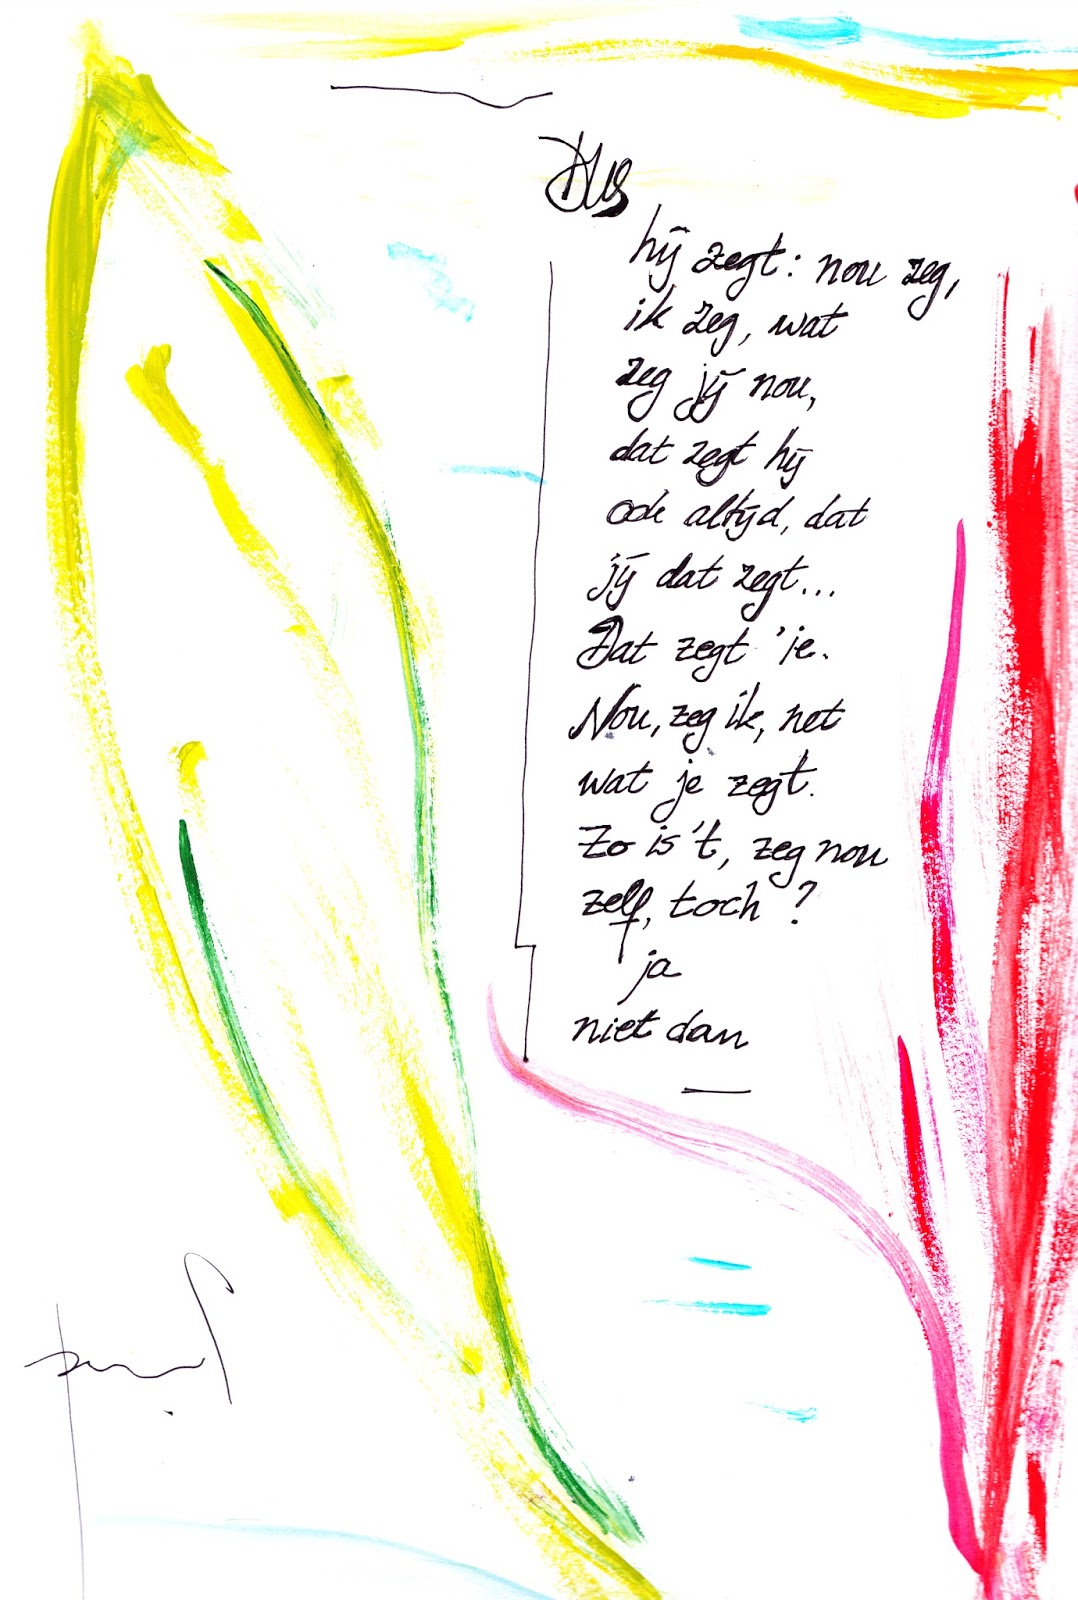 Dus
hij zegt: nou zeg,
ik zeg, wat
zeg jij nou,
dat zegt hij
ook altijd, dat
jij dat zegt...
Dat zegt 'je.
Nou, zeg ik, net
wat je zegt.
Zo is 't, zeg nou
zelf, toch?
ja
niet dan